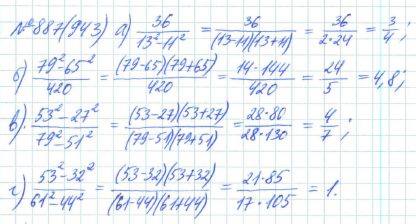 №887(943) а) 36/(13²-11²) = 36/((13-11)(13+11)) = 36/(2·24) = 3/4;
б) (79²-65²)/420 = (79-65)(79+65)/420 = 14·144/420 = 24/5 = 4,8;
в) (53²-27²)/(79²-51²) = (53-27)(53+27)/((79-51)(79+51)) = 28·80/(28·130) = 4/7;
г) (53²-32²)/(61²-44²) = (53-32)(53+32)/((61-44)(61+44)) = 21·85/(17·105) = 1.